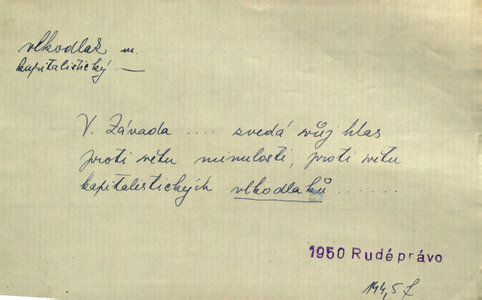 vlkodlak m.
kapitalistický —
V. Závada .... zvedá svůj hlas
proti světu minulosti, proti světu
kapitalistických vlkodlaků .......
1950 Rudé právo